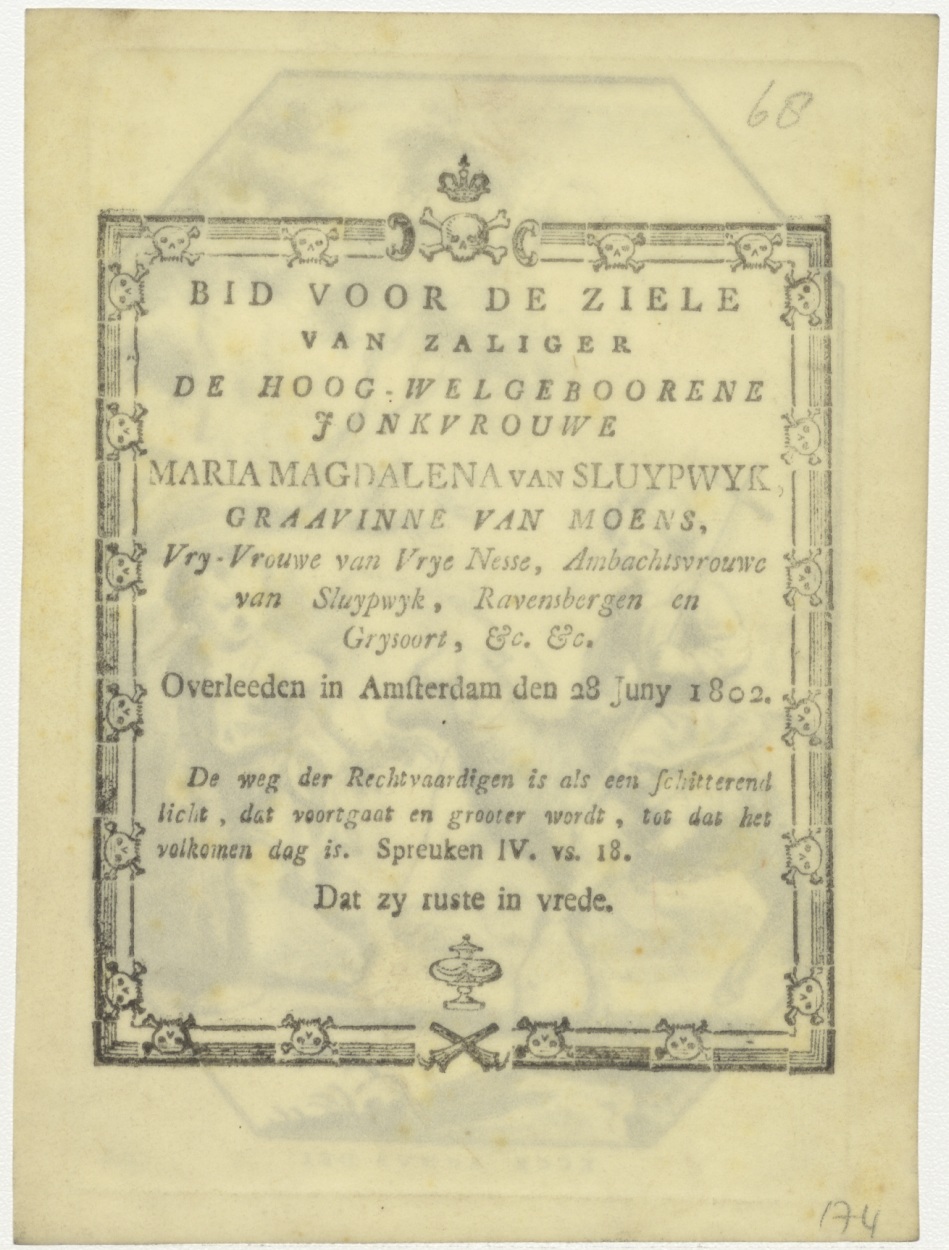 68
BID VOOR DE ZIELE
VAN ZALIGER
DE HOOG-WELGEBOORENE
JONKVROUWE
MARIA MAGDALENA VAN SLUYPWYK,
GRAAVINNE VAN MOENS,
Vry-Vrouwe van Vrye Nesse, Ambachtsvrouwe
van Sluypwyk, Ravensbergen en
Grysoort, &c. &c.
Overleeden in Amſterdam den 28 Juny 1802.
De weg der Rechtvaardigen is als een ſchitterend
licht, dat voortgaat en grooter wordt, tot dat het
volkomen dag is. Spreuken IV. vs. 18.
Dat zy ruste in vrede.
174